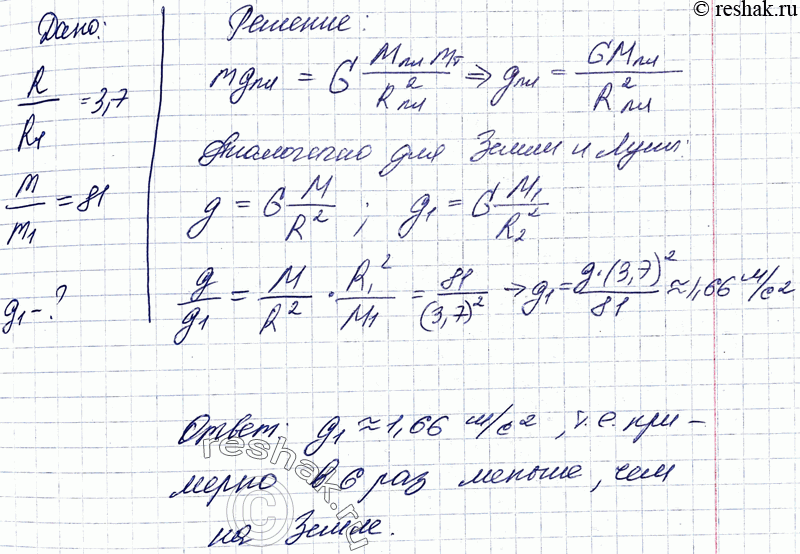 © reshak.ru
Дано:
R/R₁ = 3,7
m/m₁ = 81
g₁ - ?
Решение:
mgпл = G Mпл mт / R²пл ⇒ gпл = GMпл / R²пл
Аналогично для Земли и Луны:
g = G M/R² ; g₁ = G M₁/R₂²
g/g₁ = M/R² · R₁²/M₁ = 81/(3,7)² → g₁ = g·(3,7)²/81 ≈ 1,66 м/с²
Ответ: g₁ ≈ 1,66 м/с², т.е. при-
мерно в 6 раз меньше, чем
на Земле.
© reshak.ru